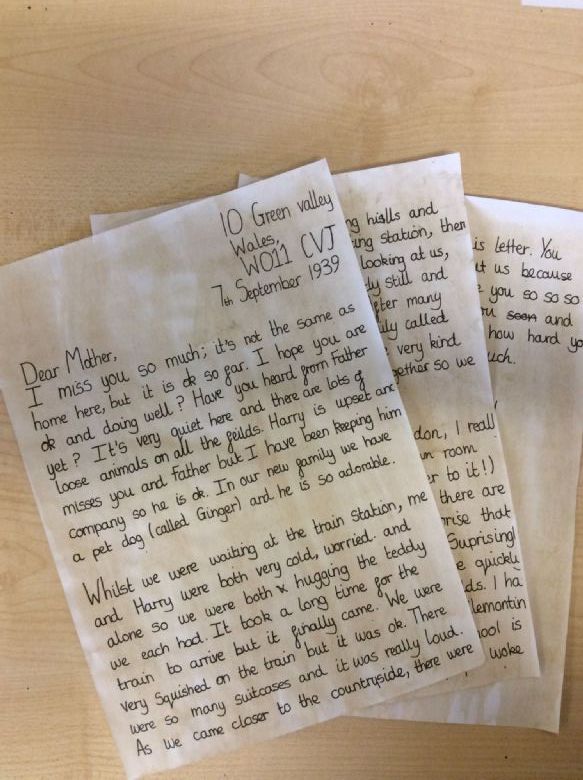 10 Green valley
Wales,
WO11 CVJ
7th September 1939
Dear Mother,
I miss you so much; it's not the same as
home here, but it is ok so far. I hope you are
ok and doing well? Have you heard from Father
yet? It's very quiet here and there are lots of
loose animals on all the feilds. Harry is upset and
misses you and Father but I have been keeping him
company so he is ok. In our new family we have
a pet dog (called Ginger) and he is so adorable.
Whilst we were waiting at the train station, me
and Harry were both very cold, worried. and
alone so we were both x hugging the teddy
we each had. It took a long time for the
train to arrive but it finally came. We were
very squished on the train but it was ok. There
were so many suitcases and it was really loud.
As we came closer to the countryside, there were
ng hiills and
ing station, then
looking at us,
dy still and
fter many
ly called
very kind
gether so we
don, I reall
wn room
er to it!)
there are
rise that
Suprisingl
e quickly
ds. I ha
lemontin
ool is
woke
is letter. You
ut us because
you so so so
ou soon and
how hard yo
uch.